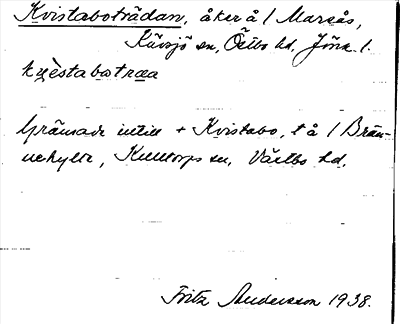 Kvistaboträdan, åker å 1 Marsås,
Kävsjö sn, Östbo hd, Jönk. l.
Gränsade intill + Kvistabo, t å 1 Brän-
nehylte, Kulltorps sn, Västbo hd.
Fritz Andersson 1938.